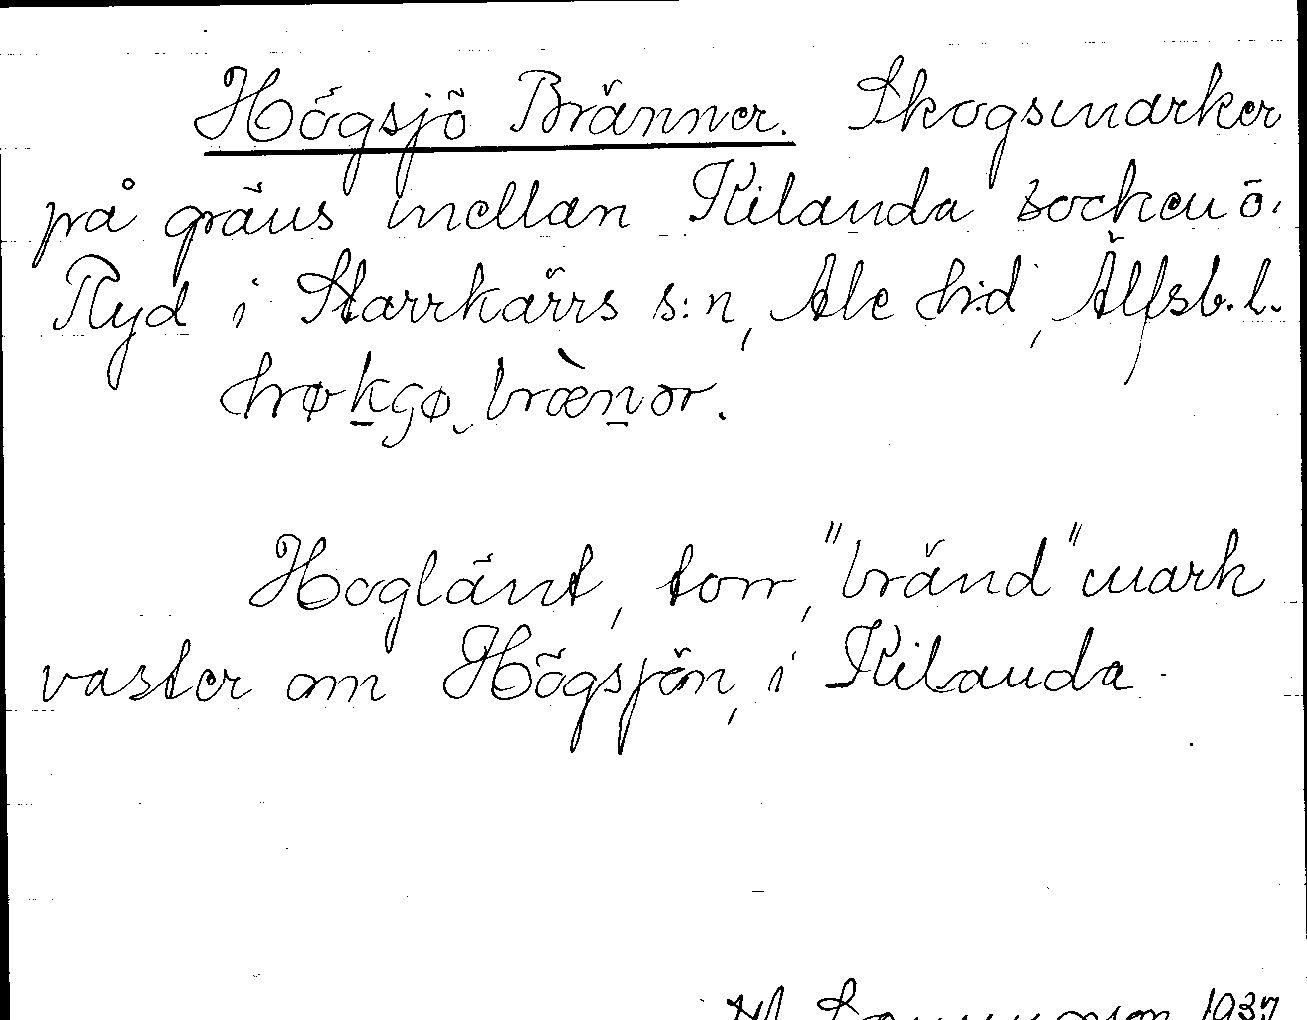 Högsjö Bränner. Skogsmarker
på gräns mellan Kilanda socken ö.
Ryd i Starrkärrs s:n, Ale h:d, Älfsb. l.
Höglänt, torr, "bränd" mark
väster om Högsjön, i Kilanda
1937